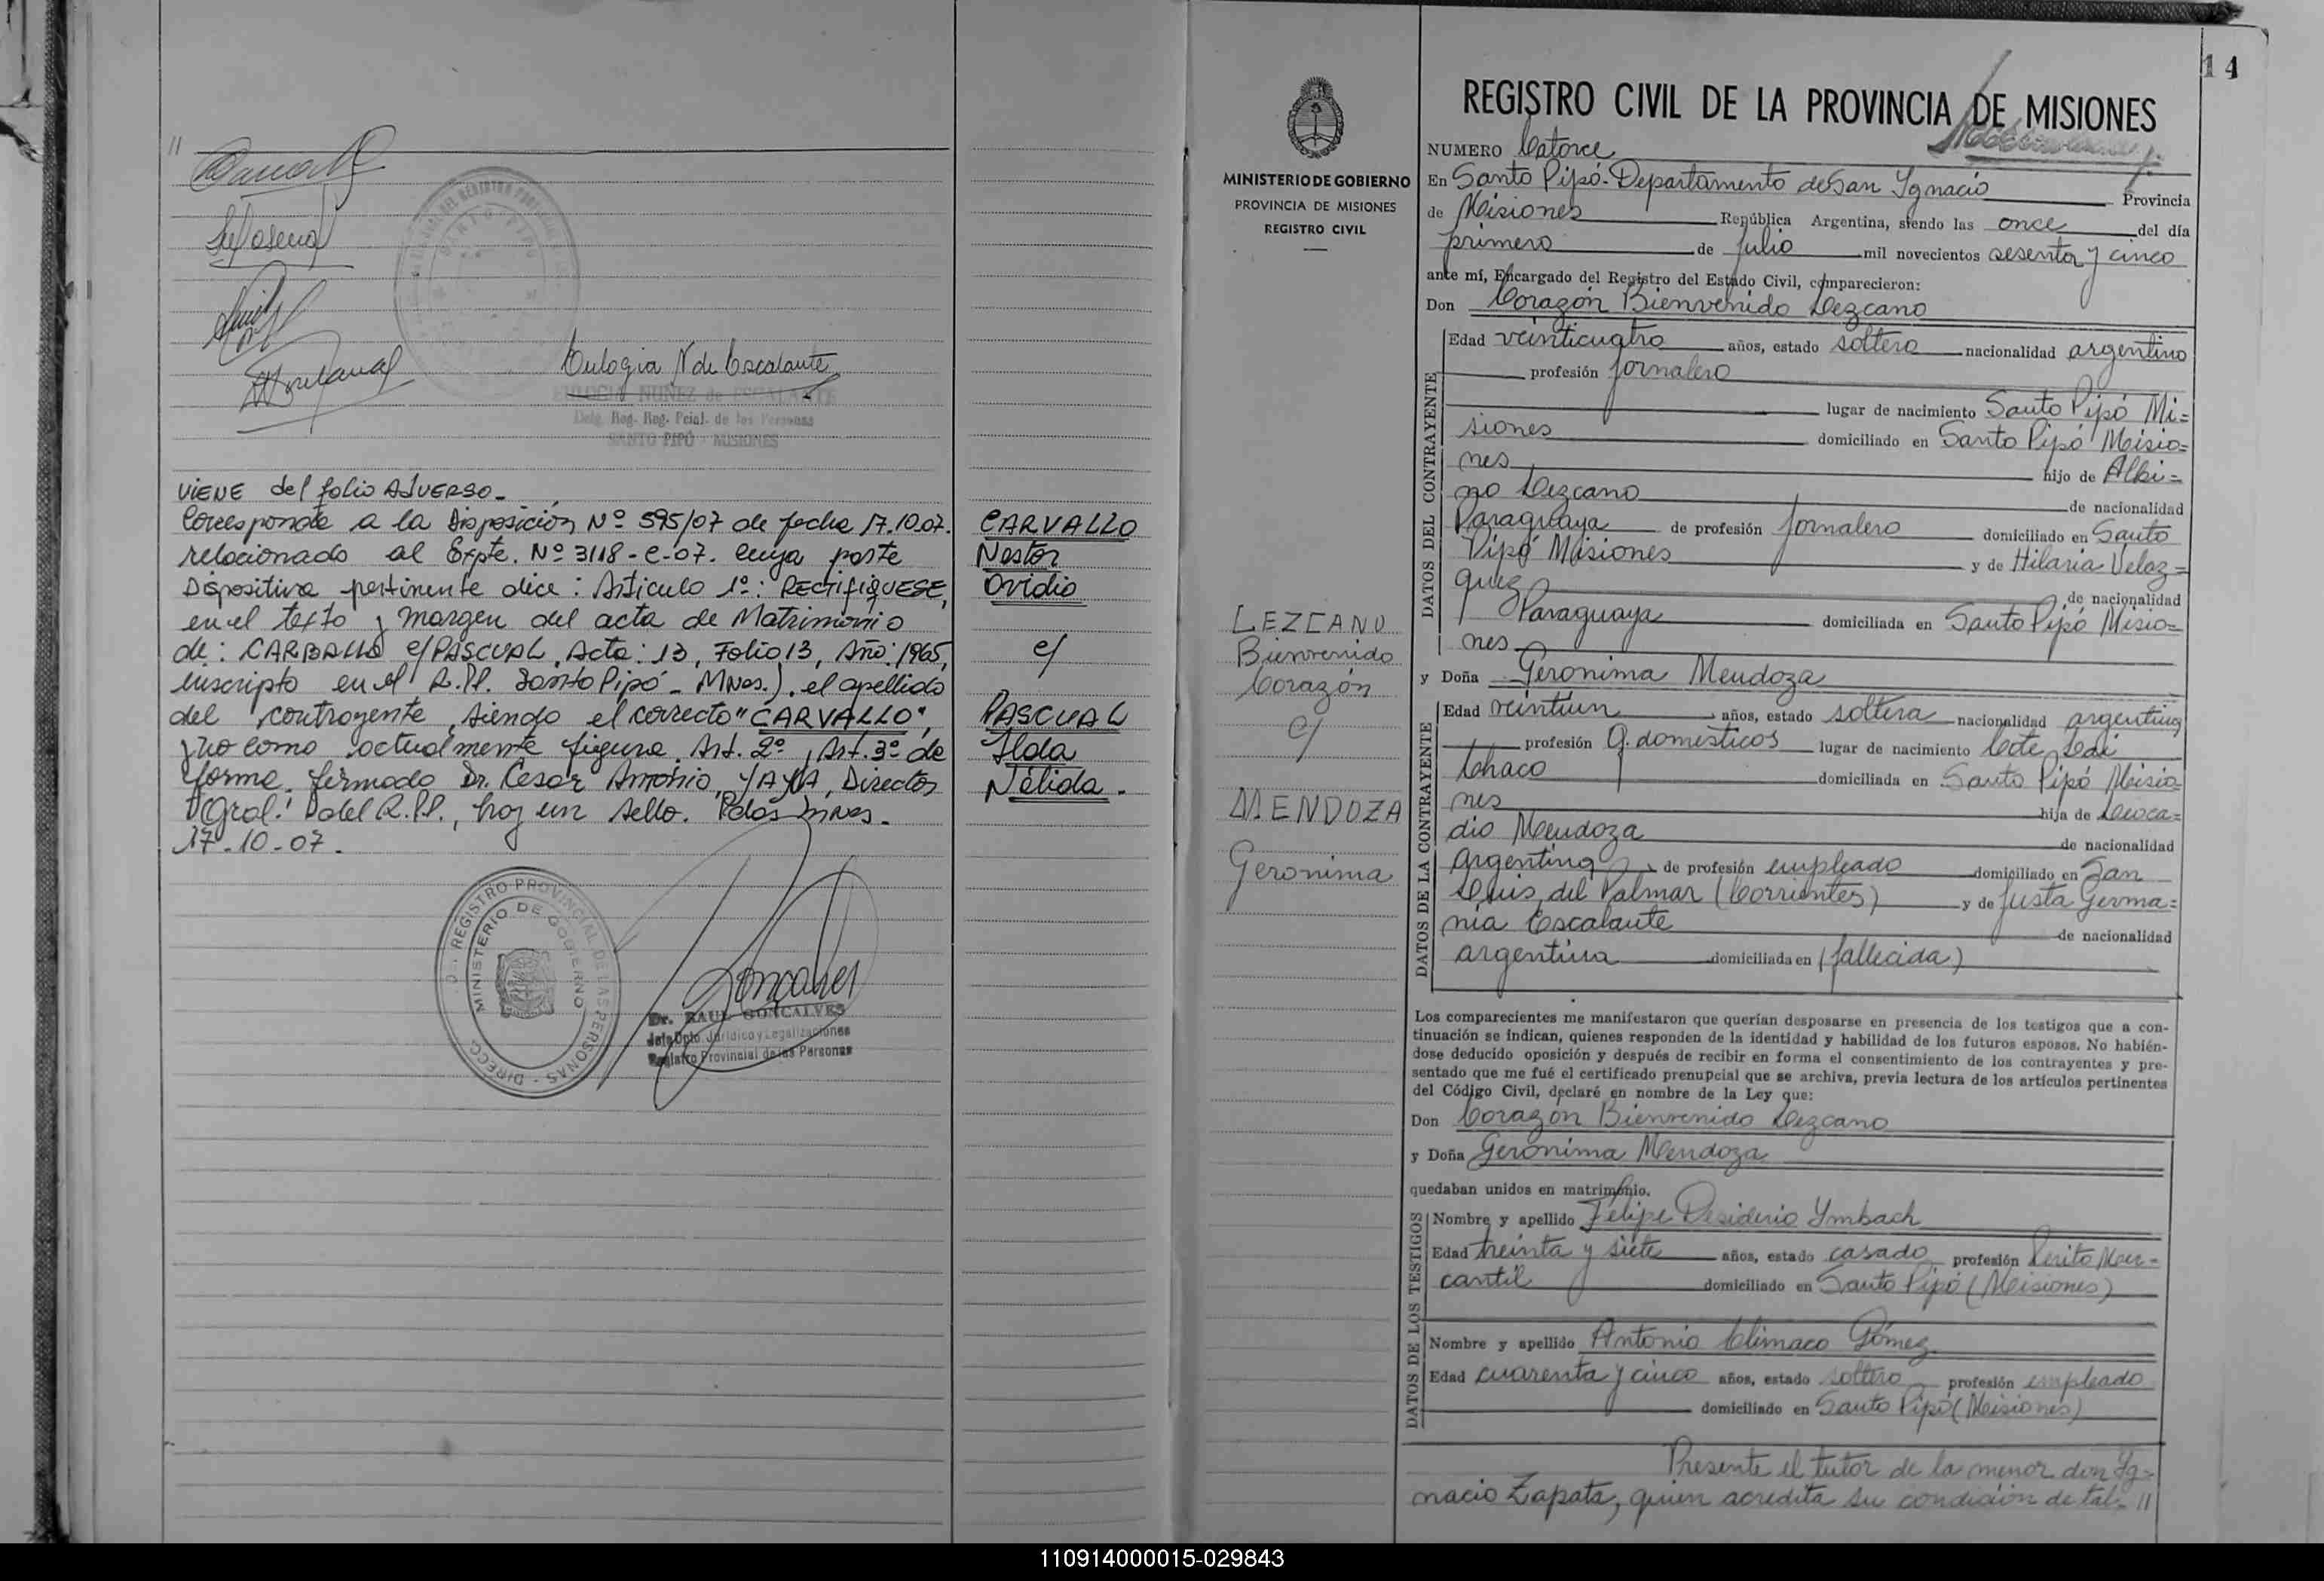 //
Eulogia N de Escalante
EULOGIA NUÑEZ de ESCALANTE
Deleg. Reg. Pcial. de las Personas
SANTO PIPÓ - MISIONES
VIENE del folio ADVERSO-
Corresponde a la Disposición Nº 595/07 de fecha 17.10.07.
relacionado al Expte. Nº 3118-C-07. cuya parte
Dispositiva pertinente dice: Artículo 1º: RECTIFIQUESE,
en el texto y margen del acta de Matrimonio
de: CARBALLO c/ PASCUAL, Acta: 13, Folio 13, Año: 1965,
inscripto en el R.PP. Santo Pipó - MNes.), el apellido
del contrayente, siendo el correcto "CARVALLO",
y no como actualmente figura. Art. 2º, Art. 3º de
forma. firmado Dr. Cesar Antonio, YAYA, Director
Gral. del R.PP., hay un sello. Pdas Mnes.
17-10-07.
DIRECC. REGISTRO PROVINCIAL DE LAS PERSONAS
MINISTERIO DE GOBIERNO
Dr. RAUL GONCALVES
Jefe Dpto. Jurídico y Legalizaciones
Registro Provincial de las Personas
CARVALLO
Nestor
Ovidio
c/
PASCUAL
Ilda
Nélida.
14
MINISTERIO DE GOBIERNO
PROVINCIA DE MISIONES
REGISTRO CIVIL
LEZCANO
Bienvenido
Corazón
c/
MENDOZA
Geronima
REGISTRO CIVIL DE LA PROVINCIA DE MISIONES
NUMERO Catorce
En Santo Pipó-Departamento de San Ygnacio Provincia
de Misiones República Argentina, siendo las once del día
primero de Julio mil novecientos sesenta y cinco
ante mí, Encargado del Registro del Estado Civil, comparecieron:
Don Corazón Bienvenido Lezcano
DATOS DEL CONTRAYENTE
Edad veinticuatro años, estado soltero nacionalidad argentino
profesión Jornalero
lugar de nacimiento Santo Pipó Mi=
siones domiciliado en Santo Pipó Misio=
nes hijo de Albi=
no Lezcano de nacionalidad
Paraguaya de profesión Jornalero domiciliado en Santo
Pipó Misiones y de Hilaria Velaz=
quez de nacionalidad
Paraguaya domiciliada en Santo Pipó Misio=
nes
y Doña Geronima Mendoza
DATOS DE LA CONTRAYENTE
Edad veintiun años, estado soltera nacionalidad argentina
profesión Q. domesticos lugar de nacimiento
Chaco domiciliada en Santo Pipó Misio=
nes hija de Leoca=
dio Mendoza de nacionalidad
Argentina de profesión empleado domiciliado en San
Luis del Palmar (Corrientes) y de Justa Germa=
nia Escalante de nacionalidad
argentina domiciliada en (fallecida)
Los comparecientes me manifestaron que querían desposarse en presencia de los testigos que a con-
tinuación se indican, quienes responden de la identidad y habilidad de los futuros esposos. No habién-
dose deducido oposición y después de recibir en forma el consentimiento de los contrayentes y pre-
sentado que me fué el certificado prenupcial que se archiva, previa lectura de los artículos pertinentes
del Código Civil, declaré en nombre de la Ley que:
Don Corazón Bienvenido Lezcano
y Doña Geronima Mendoza
quedaban unidos en matrimonio.
DATOS DE LOS TESTIGOS
Nombre y apellido Felipe Desiderio Ymbach
Edad treinta y siete años, estado casado profesión Perito Mer-
cantil domiciliado en Santo Pipó (Misiones)
Nombre y apellido Antonio Climaco Gómez
Edad cuarenta y cinco años, estado soltero profesión empleado
domiciliado en Santo Pipó (Misiones)
Presente el tutor de la menor don Yg=
nacio Zapata, quien acredita su condición de tal- //
110914000015-029843